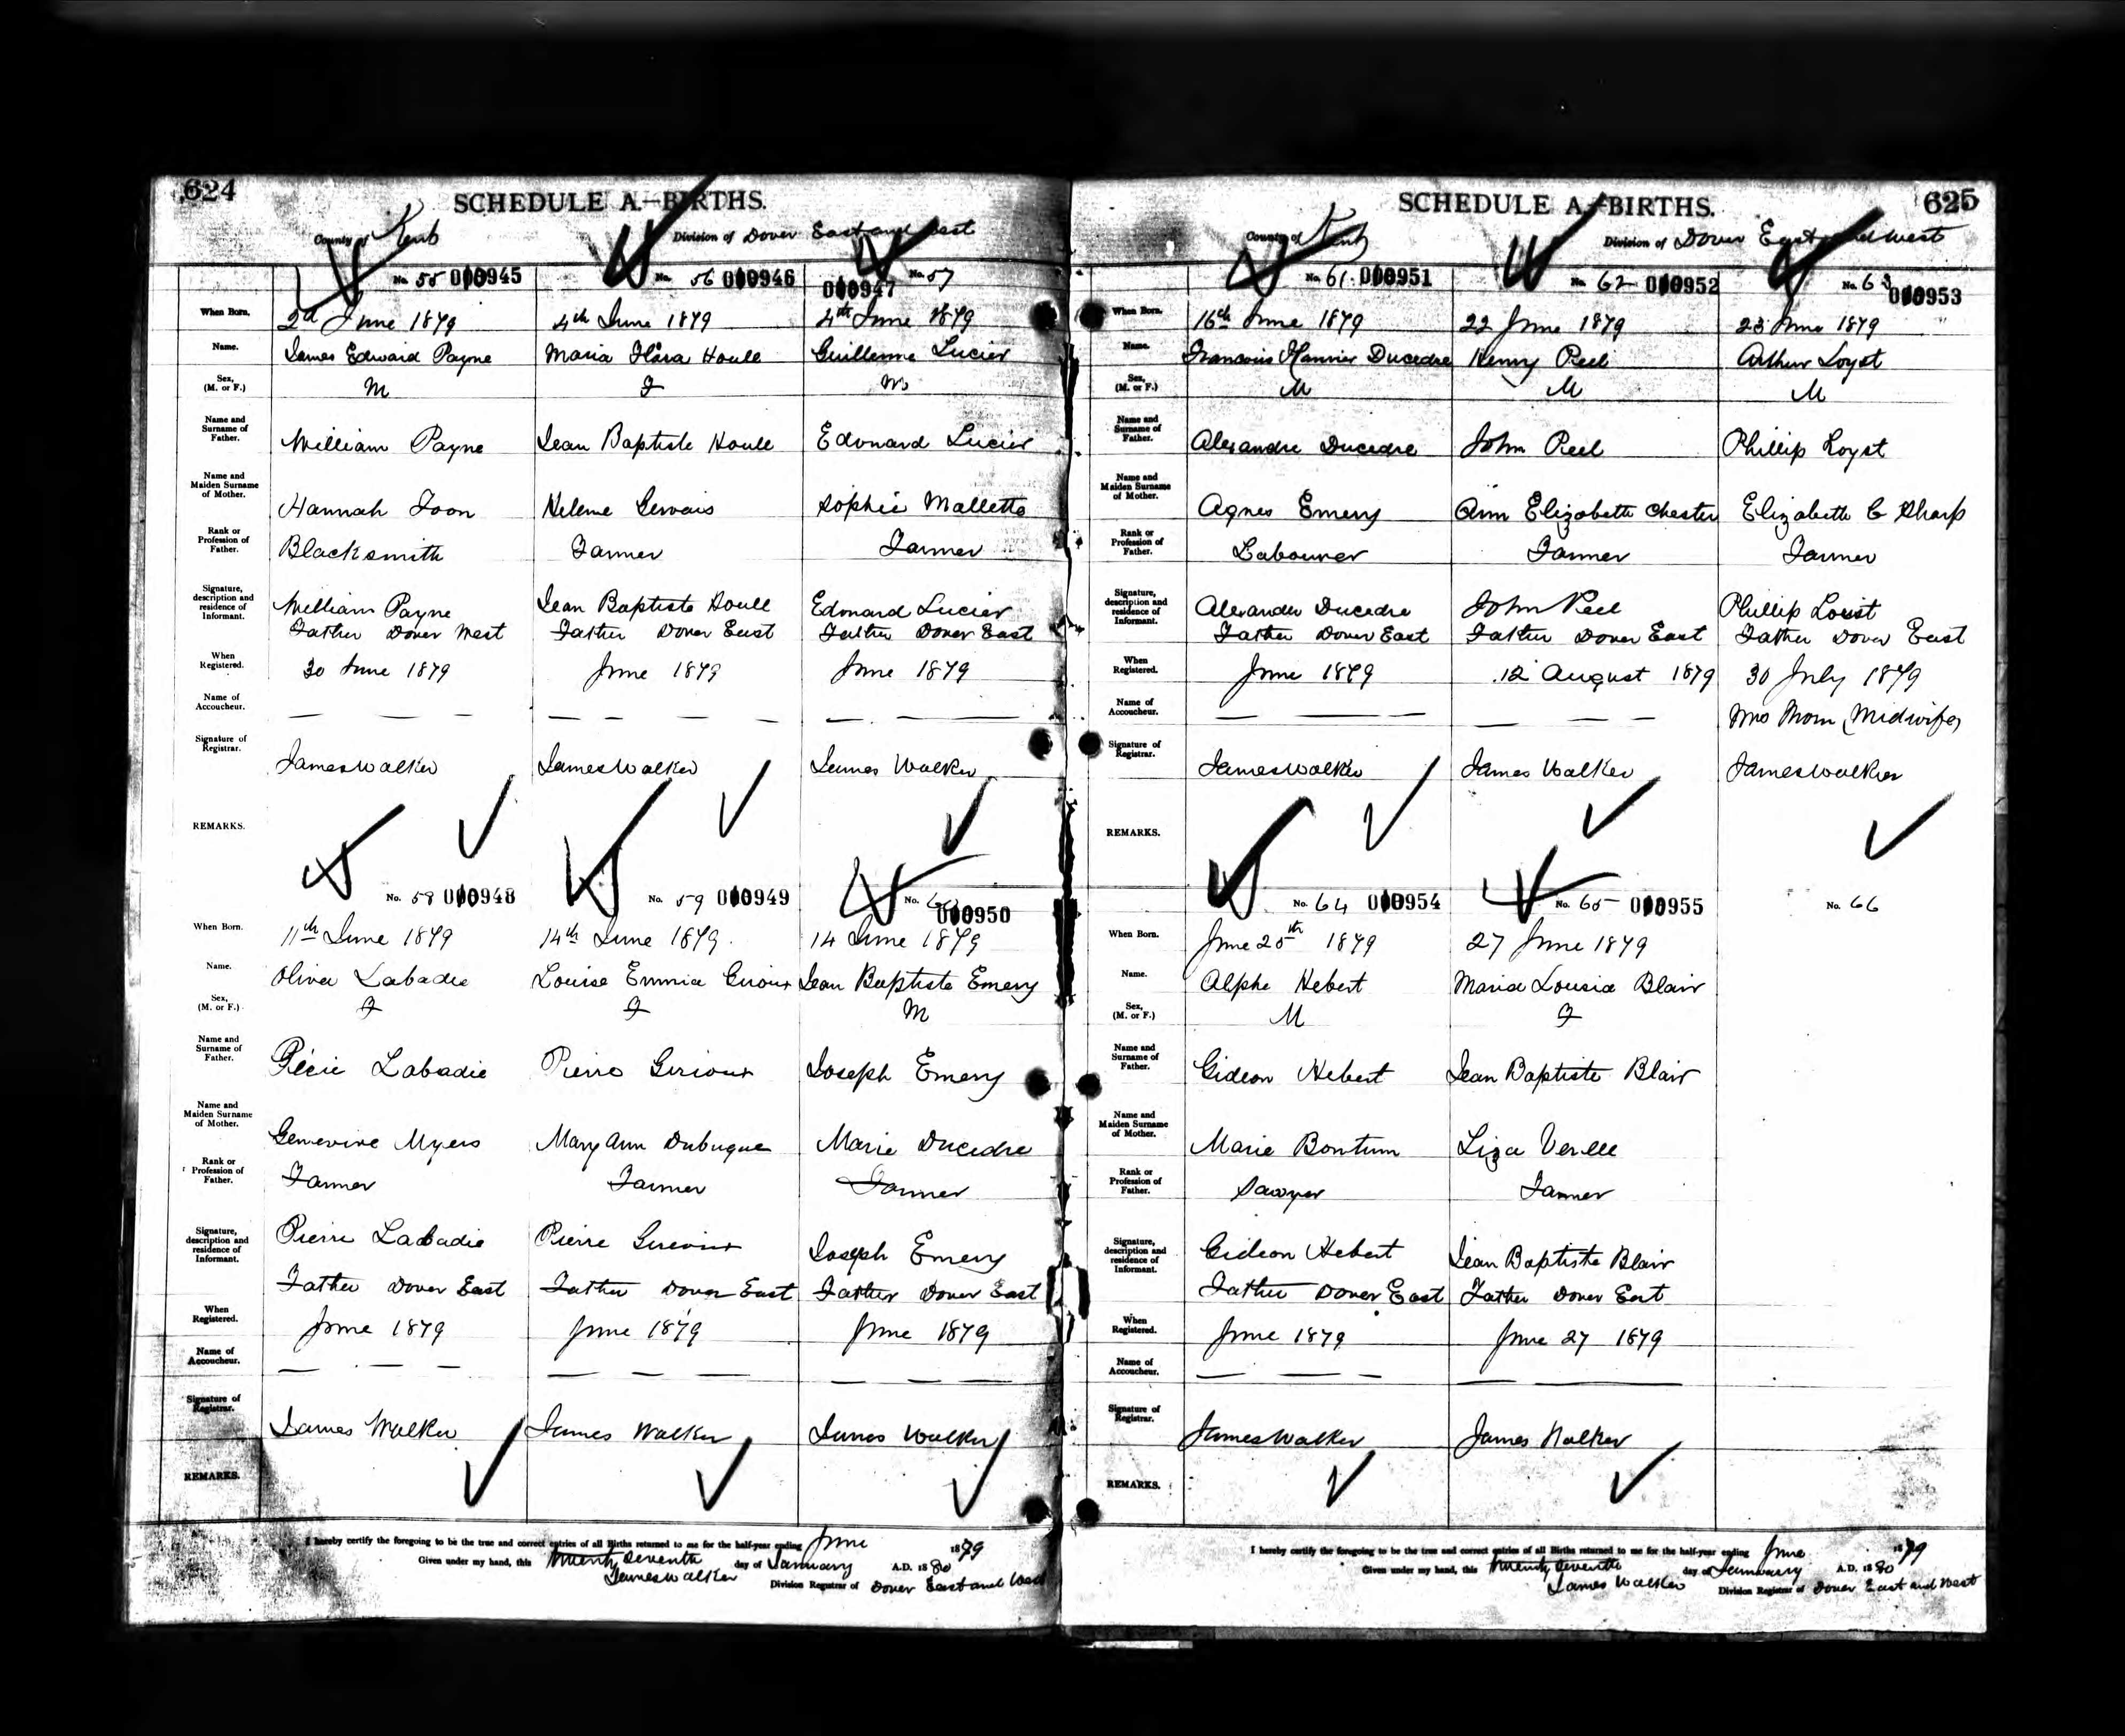 624
SCHEDULE A.—BIRTHS.
County of Kent
Division of Dover East and West
No. 55 000945
No. 56 000946
No. 57 000947
When Born.
2d June 1879
4th June 1879
4th June 1879
Name.
James Edward Payne
Maria Flora Houle
Guillemme Lucier
Sex, (M. or F.)
M
F
M
Name and Surname of Father.
William Payne
Jean Baptiste Houle
Edouard Lucier
Name and Maiden Surname of Mother.
Hannah Toon
Helene Gervais
Sophie Mallette
Rank or Profession of Father.
Blacksmith
Farmer
Farmer
Signature, description and residence of Informant.
William Payne
Father Dover West
Jean Baptiste Houle
Father Dover East
Edouard Lucier
Father Dover East
When Registered.
30 June 1879
June 1879
June 1879
Name of Accoucheur.
— — —
— — — —
— — —
Signature of Registrar.
James Walker
James Walker
James Walker
REMARKS.
No. 58 000948
No. 59 000949
No. 60 000950
When Born.
11th June 1879
14th June 1879.
14 June 1879
Name.
Oliva Labadie
Louise Emmia Girioux
Jean Baptiste Emery
Sex, (M. or F.)
F
F
M
Name and Surname of Father.
Labadie
Pierre Girioux
Joseph Emery
Name and Maiden Surname of Mother.
Genevive Myers
Mary Ann Dubuque
Marie Ducedre
Rank or Profession of Father.
Farmer
Farmer
Farmer
Signature, description and residence of Informant.
Pierre Labadie
Father Dover East
Pierre Girioux
Father Dover East
Joseph Emery
Father Dover East
When Registered.
June 1879
June 1879
June 1879
Name of Accoucheur.
— — —
— — —
— — —
Signature of Registrar.
James Walker
James Walker
James Walker
REMARKS.
I hereby certify the foregoing to be the true and correct entries of all Births returned to me for the half-year ending June 1879
Given under my hand, this Twenty Seventh day of January A.D. 1880
James Walker Division Registrar of Dover East and West
625
SCHEDULE A.—BIRTHS.
County of Kent
Division of Dover East and West
No. 61 000951
No. 62 000952
No. 63 000953
When Born.
16th June 1879
22 June 1879
23 June 1879
Name.
Francois Ducedre
Henry Peel
Arthur Loyst
Sex, (M. or F.)
M
M
M
Name and Surname of Father.
Alexandre Ducedre
John Peel
Phillip Loyst
Name and Maiden Surname of Mother.
Agnes Emery
Ann Elizabeth Chester
Elizabeth C Sharp
Rank or Profession of Father.
Labourer
Farmer
Farmer
Signature, description and residence of Informant.
Alexander Ducedre
Father Dover East
John Peel
Father Dover East
Phillip Loist
Father Dover East
When Registered.
June 1879
12 August 1879
30 July 1879
Name of Accoucheur.
— — —
— — —
Mrs (Midwife)
Signature of Registrar.
James Walker
James Walker
James Walker
REMARKS.
No. 64 000954
No. 65 000955
No. 66
When Born.
June 25th 1879
27 June 1879
Name.
Alphe Hebert
Maria Lousia Blair
Sex, (M. or F.)
M
F
Name and Surname of Father.
Gideon Hebert
Jean Baptiste Blair
Name and Maiden Surname of Mother.
Marie Bontum
Liza Verlle
Rank or Profession of Father.
Sawyer
Farmer
Signature, description and residence of Informant.
Gideon Hebert
Father Dover East
Jean Baptiste Blair
Father Dover East
When Registered.
June 1879
June 27 1879
Name of Accoucheur.
— — —
— —
Signature of Registrar.
James Walker
James Walker
REMARKS.
I hereby certify the foregoing to be the true and correct entries of all Births returned to me for the half-year ending June 1879
Given under my hand, this Twenty Seventh day of January A.D. 1880
James Walker Division Registrar of Dover East and West